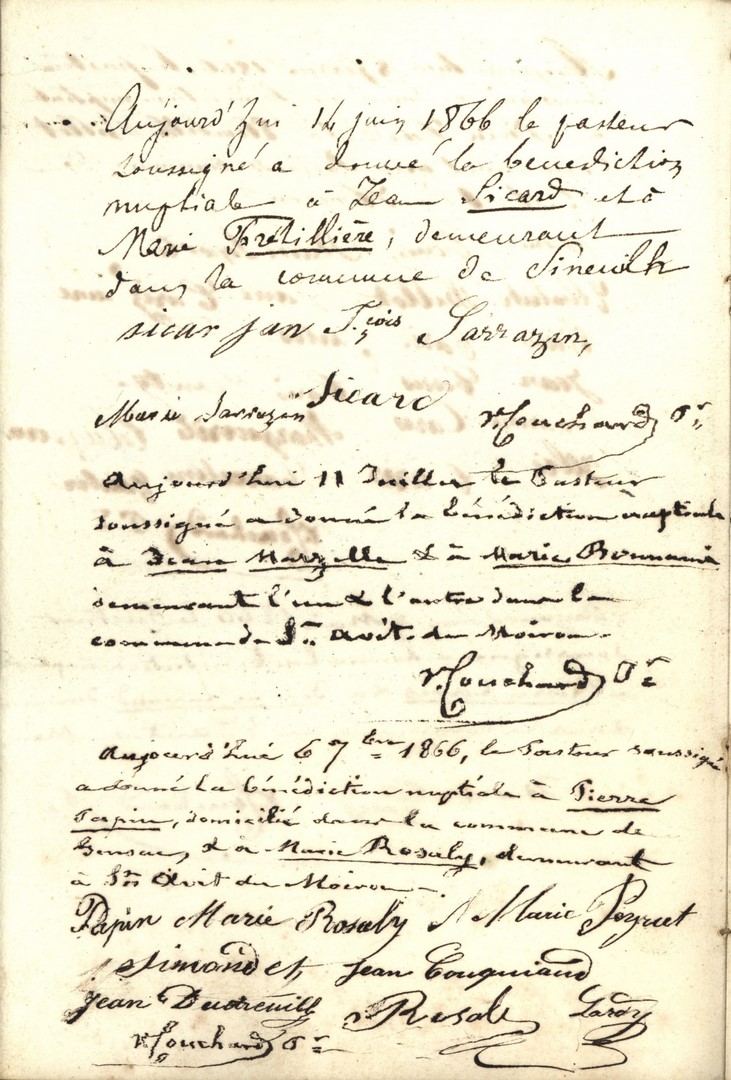 Aujourd'hui 14 juin 1866 le pasteur
soussigné a donné la benediction
nuptiale à Jean Sicard et à
Marie Frétillière, demeurant
dans la commune de Fineuilh
sicar jan F.çois Sarrazin,
Marie Sarrazin Sicard V. Couchard Pr.
Aujourd'hui 11 Juillet le Pasteur
soussigné a donné la bénédiction nuptiale
à Jean Marzelle & à Marie Bonnamie
demeurant l'un & l'autre dans la
commune de St. Avit. du Moiron.
V. Couchard Pr.
Aujourd'hui 6 7bre 1866, le Pasteur soussigné
a donné la bénédiction nuptiale à Pierre
Papin, domicilié dans la commune de
Gensac, & à Marie Rosaly, demeurant
à St. Avit du Moiron.
Papin Marie Rosaly Marie Peyruet
Simondet, Jean Couquiaud
Jean Dutreuilh Lardy
V. Couchard Pr.